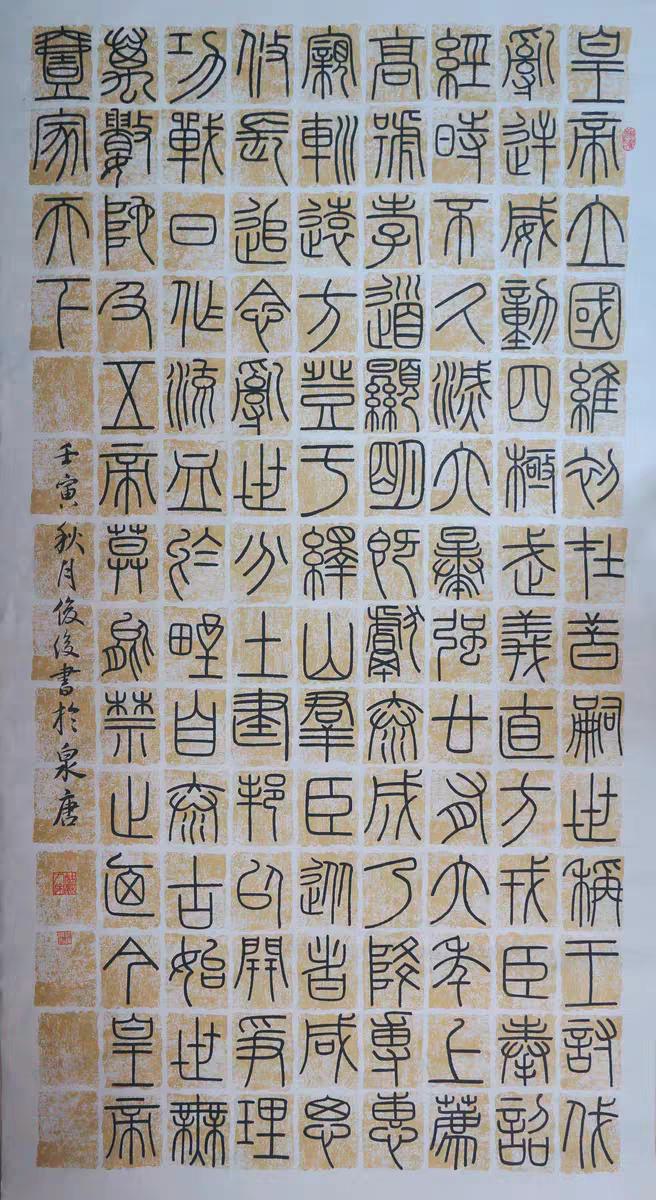 皇帝立國維初在昔嗣世稱王討伐
亂逆威動四極武義直方戎臣奉詔
經時不久滅六暴強廿有六年上薦
高號孝道顯明既獻泰成乃降尃惠
親巡遠方登于繹山羣臣從者咸思
攸長追念亂世分土建邦以開爭理
功戰日作流血於野自泰古始世無
萬數陀及五帝莫能禁止迺今皇帝
壹家天下
壬寅秋月俊俊書於泉唐